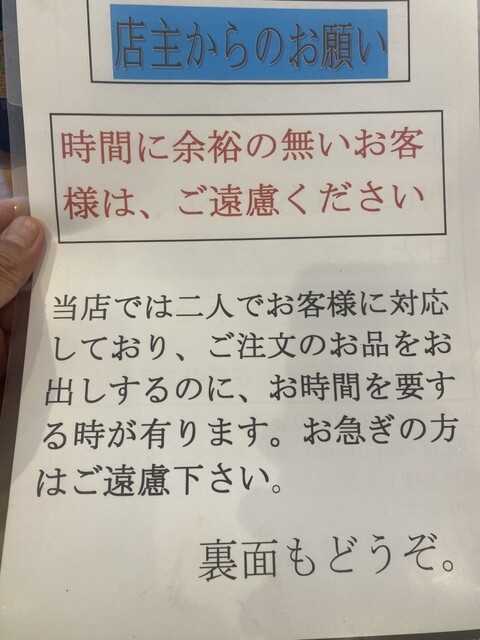 店主からのお願い
時間に余裕の無いお客
様は、ご遠慮ください
当店では二人でお客様に対応
しており、ご注文のお品をお
出しするのに、お時間を要す
る時が有ります。お急ぎの方
はご遠慮下さい。
裏面もどうぞ。